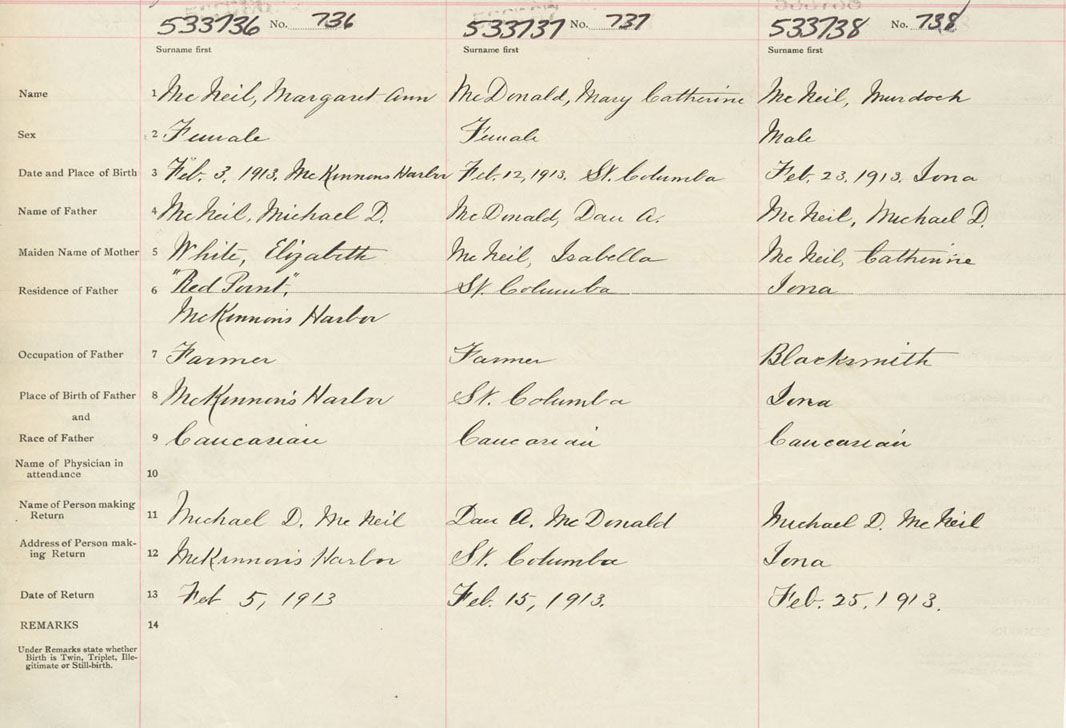 533736 No. 736 533737 No. 737 533738 No. 738
Surname first Surname first Surname first
Name 1 McNeil, Margaret Ann McDonald, Mary Catherine McNeil, Murdock
Sex 2 Female Female Male
Date and Place of Birth 3 Feb. 3, 1913, McKinnons Harbor Feb. 12, 1913. St. Columba Feb. 23, 1913. Iona
Name of Father 4 McNeil, Michael D. McDonald, Dan A. McNeil, Michael D.
Maiden Name of Mother 5 White, Elizabeth McNeil, Isabella McNeil, Catherine
Residence of Father 6 "Red Point", St. Columba Iona
McKinnon's Harbor
Occupation of Father 7 Farmer Farmer Blacksmith
Place of Birth of Father 8 McKinnon's Harbor St. Columba Iona
and
Race of Father 9 Caucasian Caucasian Caucasian
Name of Physician in
attendance 10
Name of Person making
Return 11 Michael D. McNeil Dan A. McDonald Michael D. McNeil
Address of Person mak-
ing Return 12 McKinnon's Harbor St. Columba Iona
Date of Return 13 Feb 5, 1913 Feb. 15, 1913. Feb. 25, 1913.
REMARKS 14
Under Remarks state whether
Birth is Twin, Triplet, Ille-
gitimate or Still-birth.